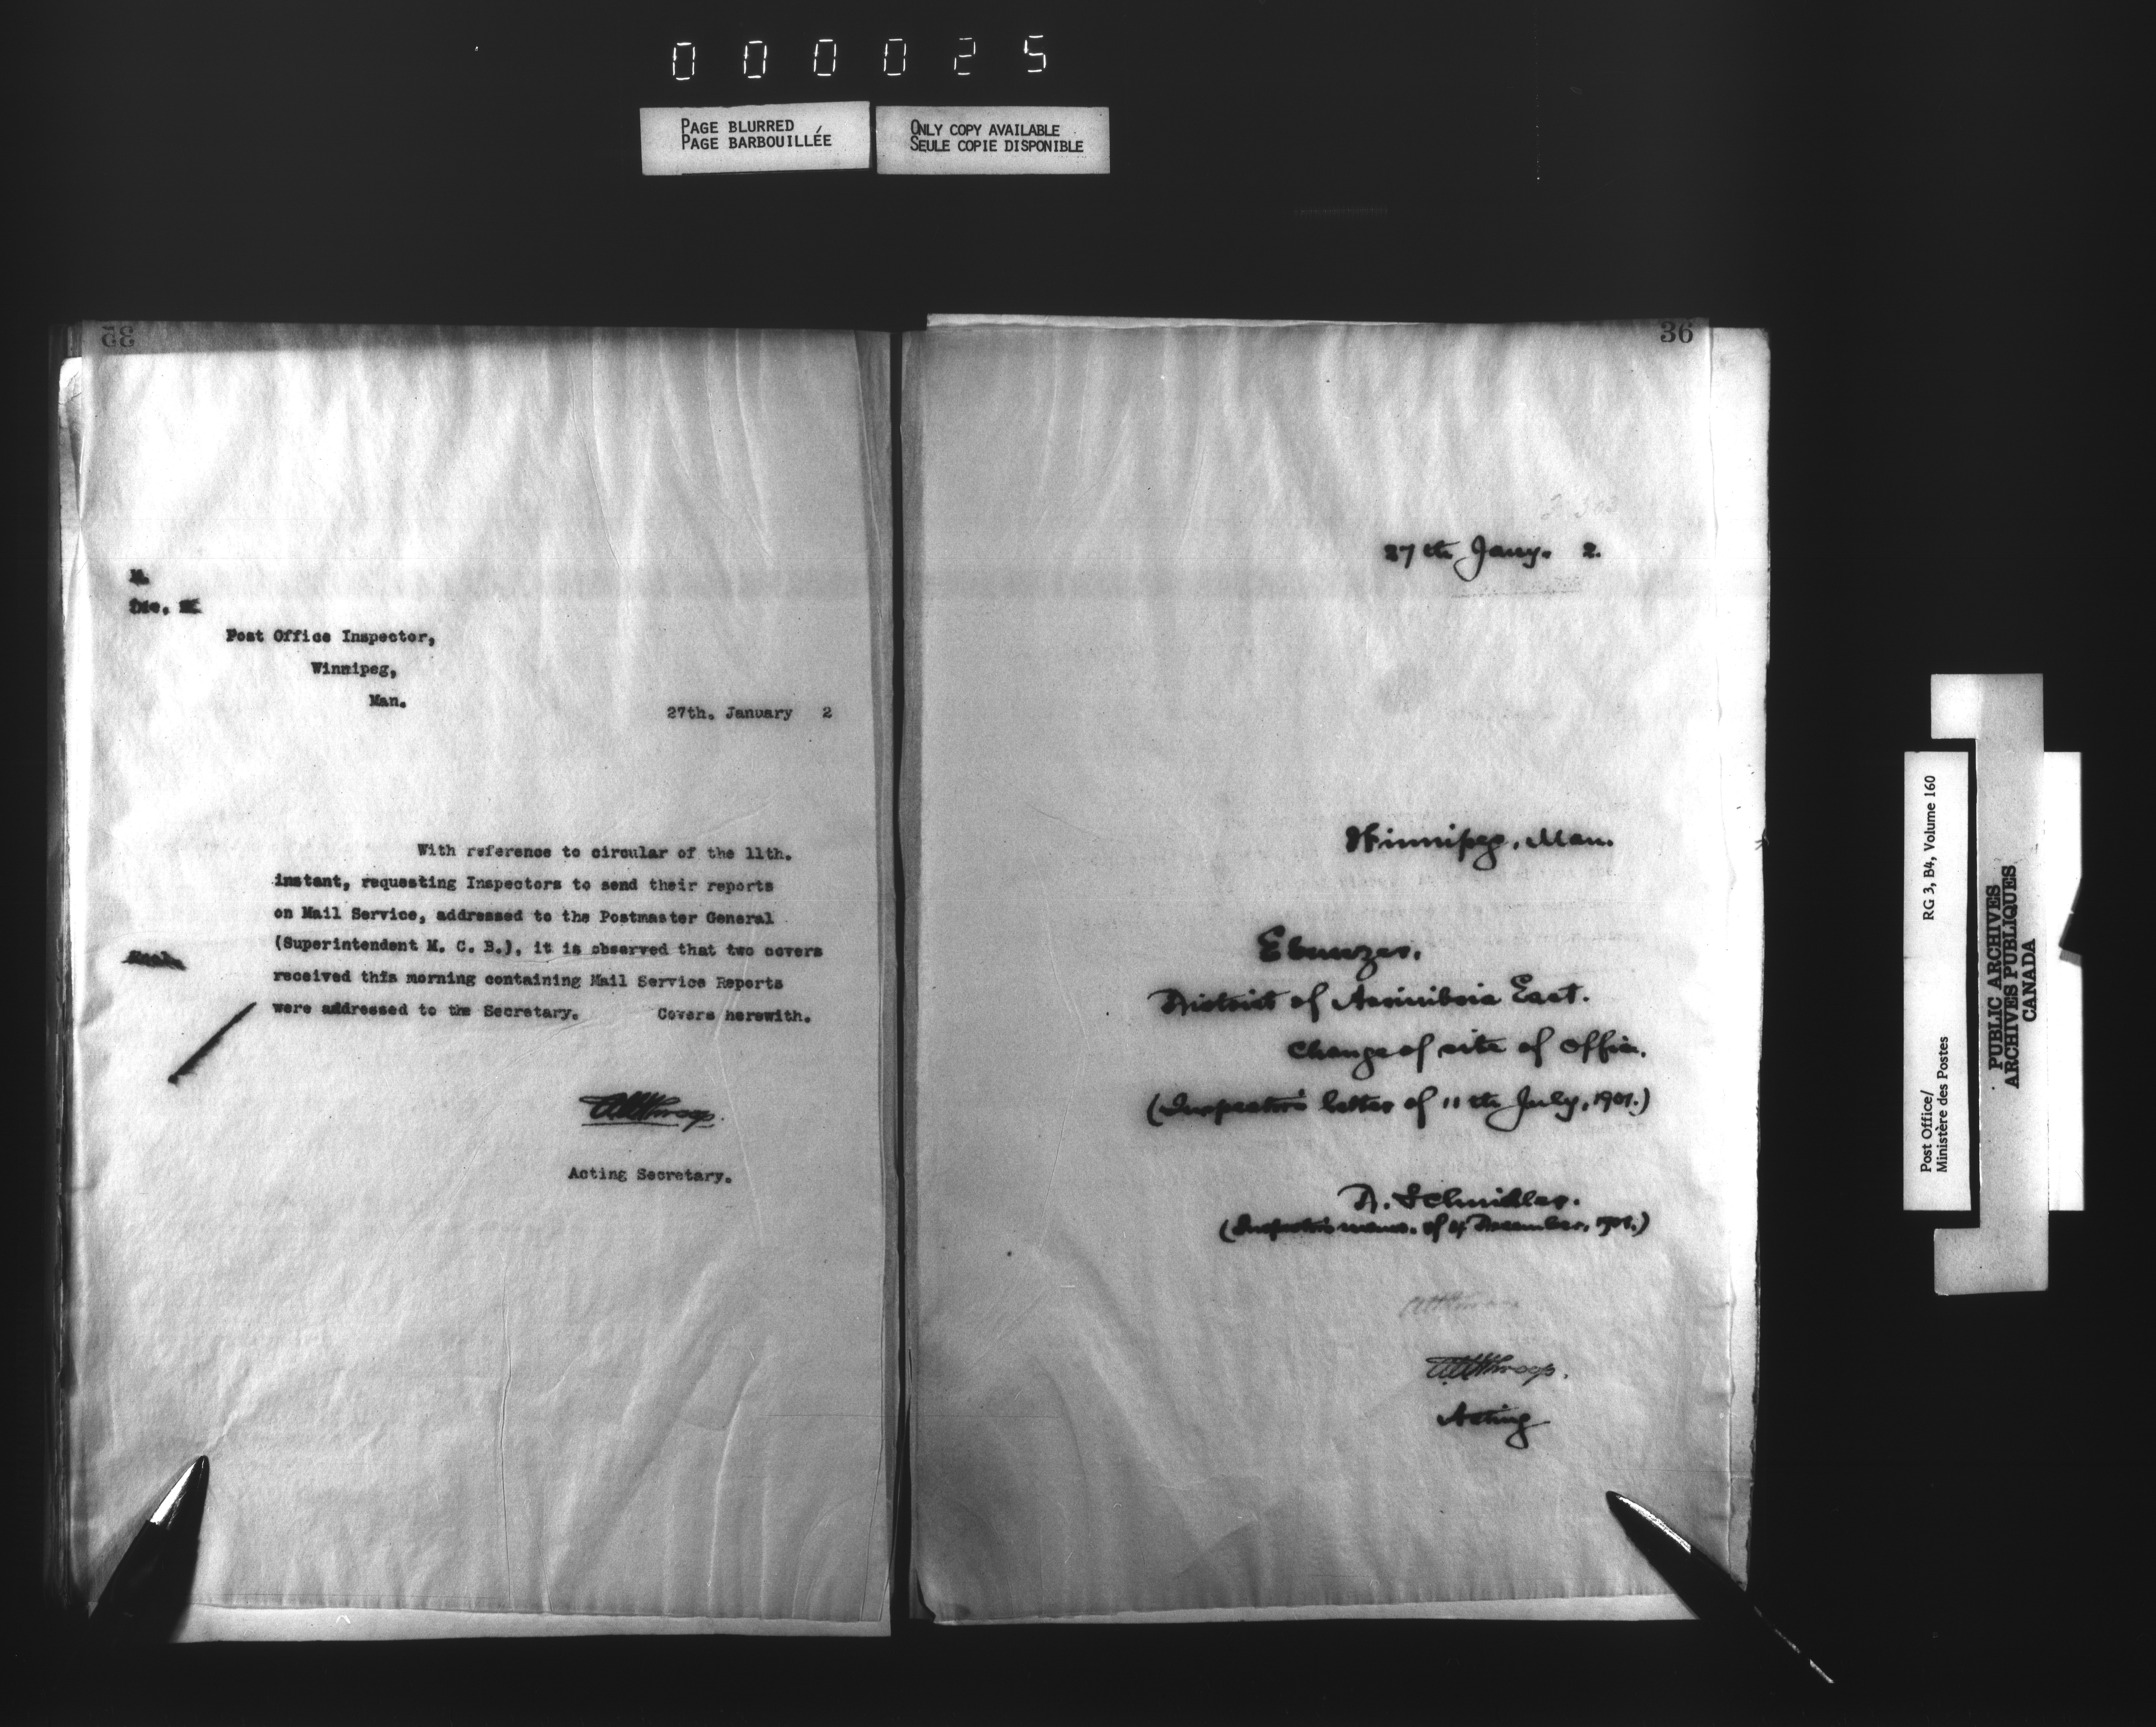 000025
PAGE BLURRED
PAGE BARBOUILLÉE
ONLY COPY AVAILABLE
SEULE COPIE DISPONIBLE
35
M.
Post Office Inspector,
Winnipeg,
Man.
27th. January 2
With reference to circular of the 11th.
instant, requesting Inspectors to send their reports
on Mail Service, addressed to the Postmaster General
(Superintendent M. C. B.), it is observed that two covers
received this morning containing Mail Service Reports
were addressed to the Secretary. Covers herewith.
Acting Secretary.
36
27th Jany. 2.
Winnipeg, Man.
Ebenezer,
District of Assiniboia East.
Change of site of Office.
(Inspector's letter of 11th July, 1901.)
(Inspector's memo. of 4 December, 1901.)
Acting
Post Office/
Ministère des Postes
RG 3, B4, Volume 160
PUBLIC ARCHIVES
ARCHIVES PUBLIQUES
CANADA